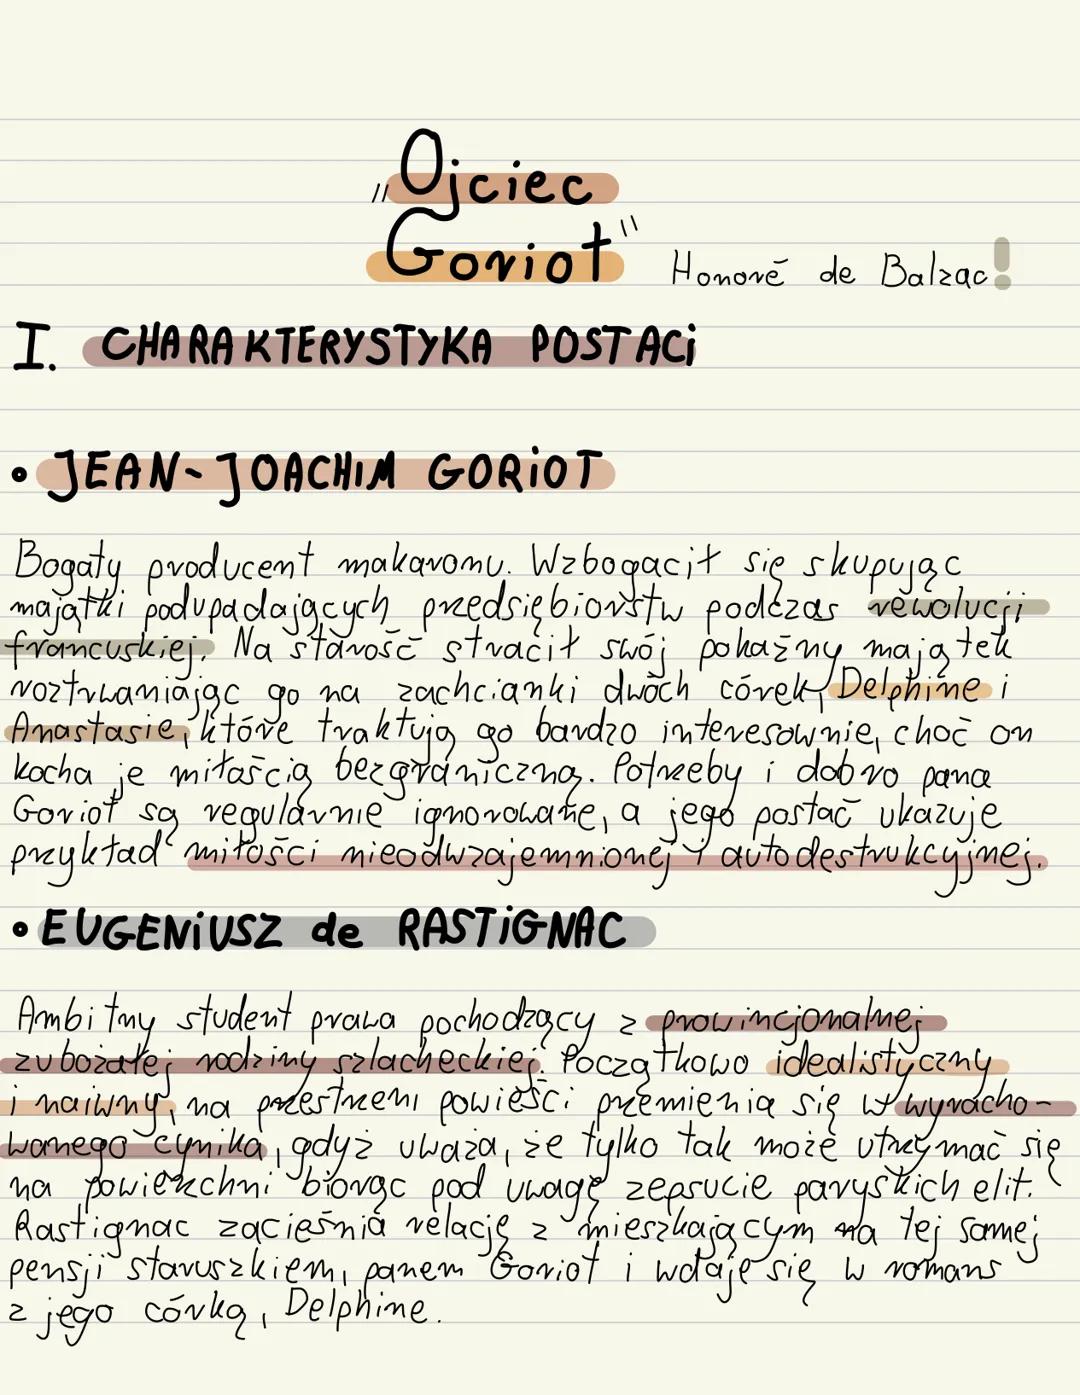 „Ojciec
Goriot" Honoré de Balzac!
I. CHARAKTERYSTYKA POSTACi
• JEAN-JOACHIM GORiOT
Bogaty producent makaronu. Wzbogacił się skupując
majątki podupadających przedsiębiorstw podczas rewolucji
francuskiej. Na starość stracił swój pokaźny majątek
roztrwaniając go na zachcianki dwóch córek, Delphine i
Anastasie, które traktują go bardzo interesownie, choć on
kocha je miłaścią bezgraniczną. Potrzeby i dobro pana
Goriot są regularnie ignorowane, a jego postać ukazuje
przykład miłości nieodwzajemnionej i autodestrukcyjnej.
• EUGENiUSZ de RASTiGNAC
Ambitny student prawa pochodzący z prowincjonalnej
zubożałej rodziny szlacheckiej. Początkowo idealistyczny
i naiwny, na przestrzeni powieści przemienia się w wyracho-
wanego cynika, gdyż uważa, że tylko tak może utrzymać się
na powierzchni biorąc pod uwagę zepsucie paryskich elit.
Rastignac zacieśnia relację z mieszkającym na tej samej
pensji staruszkiem, panem Goriot i wdaje się w romans
z jego córką, Delphine.